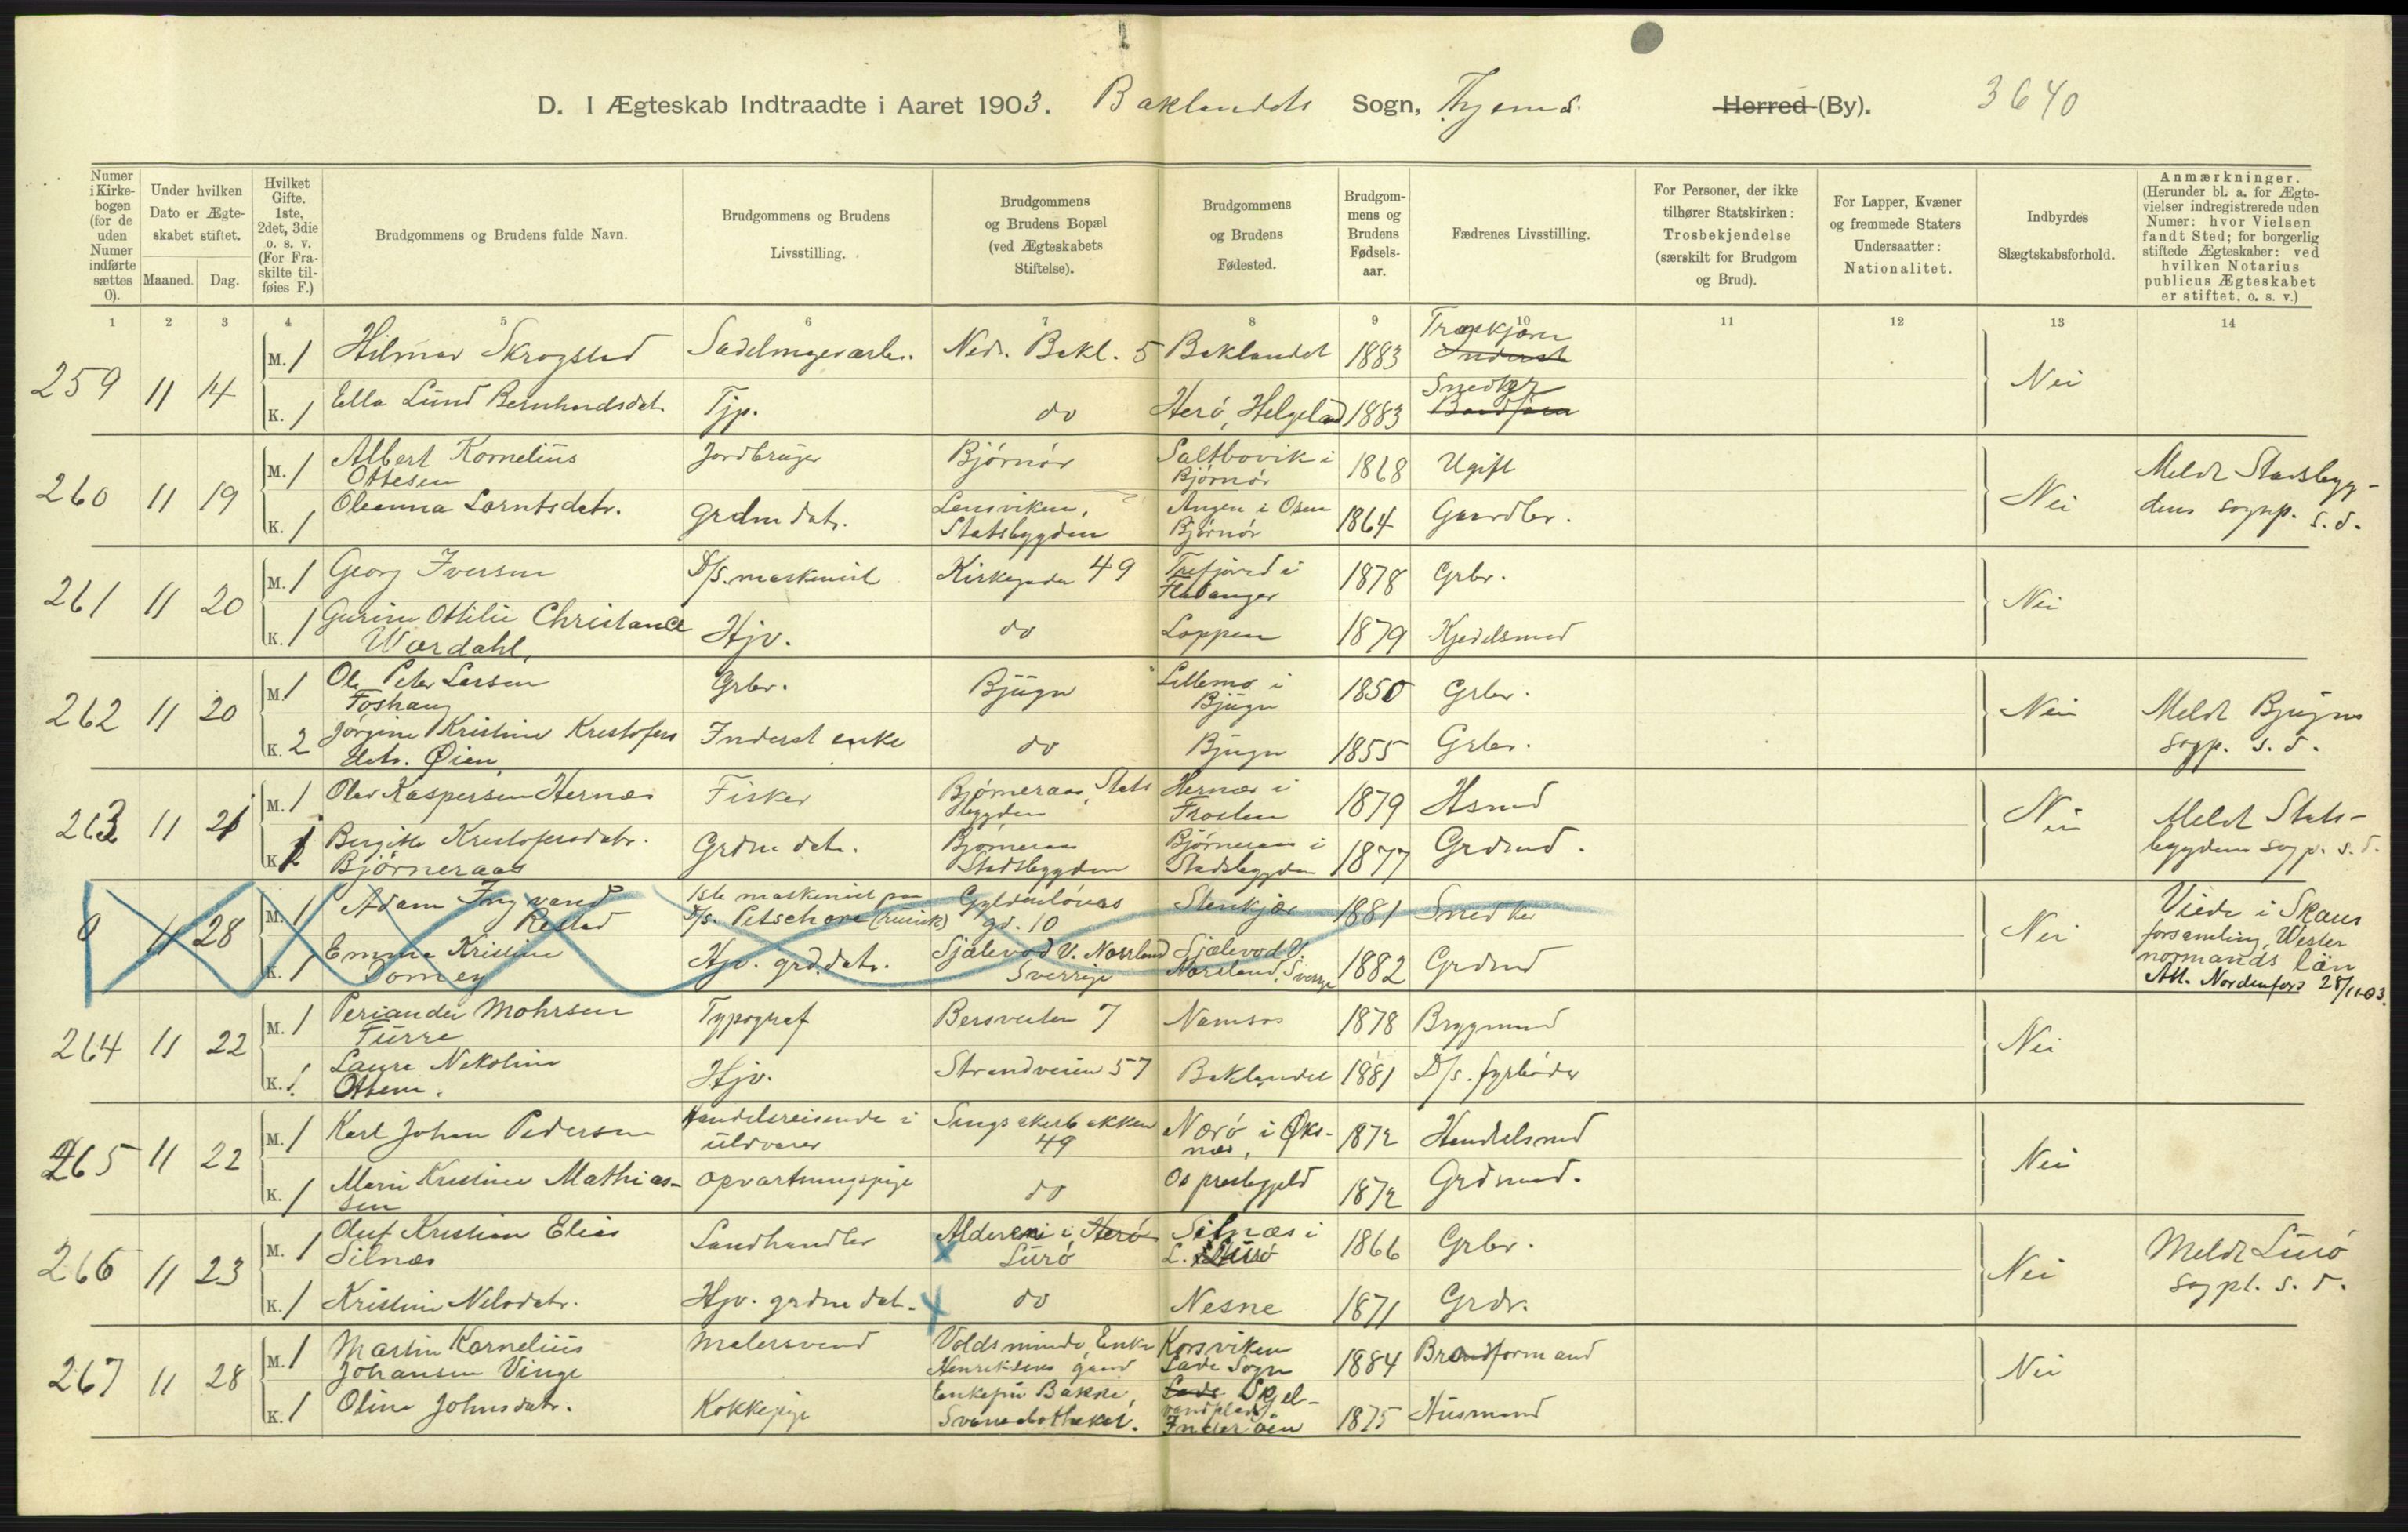 D. I Ægteskab Indtraadte i Aaret 1903. Baklandets Sogn, Thjems. Herred (By). 3640
Numer i Kirkebogen (for de uden Numer indførte sættes 0).
Under hvilken Dato er Ægteskabet stiftet.
Maaned. Dag.
Hvilket Gifte. 1ste, 2det, 3die o. s. v. (For Fraskilte tilføies F.)
Brudgommens og Brudens fulde Navn.
Brudgommens og Brudens Livsstilling.
Brudgommens og Brudens Bopæl (ved Ægteskabets Stiftelse).
Brudgommens og Brudens Fødested.
Brudgommens og Brudens Fødselsaar.
Fædrenes Livsstilling.
For Personer, der ikke tilhører Statskirken: Trosbekjendelse (særskilt for Brudgom og Brud).
For Lapper, Kvæner og fremmede Staters Undersaatter: Nationalitet.
Indbyrdes Slægtskabsforhold.
Anmærkninger. (Herunder bl. a. for Ægtevielser indregistrerede uden Numer: hvor Vielsen fandt Sted; for borgerlig stiftede Ægteskaber: ved hvilken Notarius publicus Ægteskabet er stiftet, o. s. v.)
1 2 3 4 5 6 7 8 9 10 11 12 13 14
259 11 14 M. 1 Hilmar Skrogstad Sadelmagerarb. Nedr. Bakl. 5 Baklandet 1883 Inderst Nei
K. 1 Ella Lund Bernhardsdat. Tjp. do Herø, Helgeland 1883 Snedker
260 11 19 M. 1 Albert Kornelius Ottesen Jordbruger Bjørnør Saltbovik i Bjørnør 1868 Ugift Nei Meldt Stadsbygdens sognp. s. d.
K. 1 Oleanna Larntsdatr. grdm datr. Lensviken, Statsbygden Angen i Osen Bjørnør 1864 Gaardbr.
261 11 20 M. 1 Georg Iversen D/s. maskinist Kirkegaden 49 Flatanger 1878 Grbr. Nei
K. 1 Gurine Ottilie Christance Wærdahl, Hjv. do Loppen 1879 Kjedelsmed
262 11 20 M. 1 Ole Peter Larsen Foshaug Grbr. Bjugn Lillemo i Bjugn 1850 Grbr. Nei Meldt Bjugns sogp. s. d.
K. 2 Jørgine Kristine Kristofers datr. Øien Inderst enke do Bjugn 1855 Grbr.
263 11 21 M. 1 Olav Kaspersen Hernes Fisker Bjørneraas, Stats bygden Hernes i Frosten 1879 Hsmd Nei Meldt Stats- bygdens sogp. s. d.
K. 1 Bergitte Kristofersdatr. Bjørneraas Grdm datr. Bjørneraas Stadsbygden Bjørneraas i Stadsbygden 1877 Grdmd.
0 11 28 M. 1 Adam Ingvand Restad 1ste maskinist paa D/s. Petschora (russisk) Gyldenløves gd. 10 Stenkjær 1881 Snedker Nei Viede i Skaus forsamling, Wester normands län Att. Nordenfors 28/11 03.
K. 1 Emma Kristine Domey Hjv. grd. datr. Sjælevod V. Norrland Sverrige Sjælevod V. Norrland, Sverige 1882 Grdmd
264 11 22 M. 1 Periander Mohrsen Furre Typograf Bersveiten 7 Namsos 1878 Brygmand Nei
K. 1 Laura Nikoline Ottem. Hjv. Strandveien 57 Baklandet 1881 D/s. fyrbøder
265 11 22 M. 1 Karl Johan Pedersen Handelsreisende i uldvarer Singsakerbakken 49 Nærø i Øksnes, 1872 Handelsmd Nei
K. 1 Marie Kristine Mathiassen Opvartningspige do Os prestegjeld 1872 Grdmd.
266 11 23 M. 1 Oluf Kristian Elias Silnæs Landhandler Alderen i Herø Lurø Silnæs i L. Lurø 1866 Grbr. Nei Meldt Lurø sogpl. s. d.
K. 1 Kristine Nilsdatr. Hjv. grdm dat. do Nesne 1871 Grdr.
267 11 28 M. 1 Martin Kornelius Johansen Vinge Malersvend Voldsminde, Enke Henriksens gaard Korsviken Lade Sogn 1884 Brandformand Nei
K. 1 Oline Johnsdatr. Kokkepige Enkefru Bakke, Svaneapotheket. Lade Skjelvandplads Inderøen 1875 Husmand